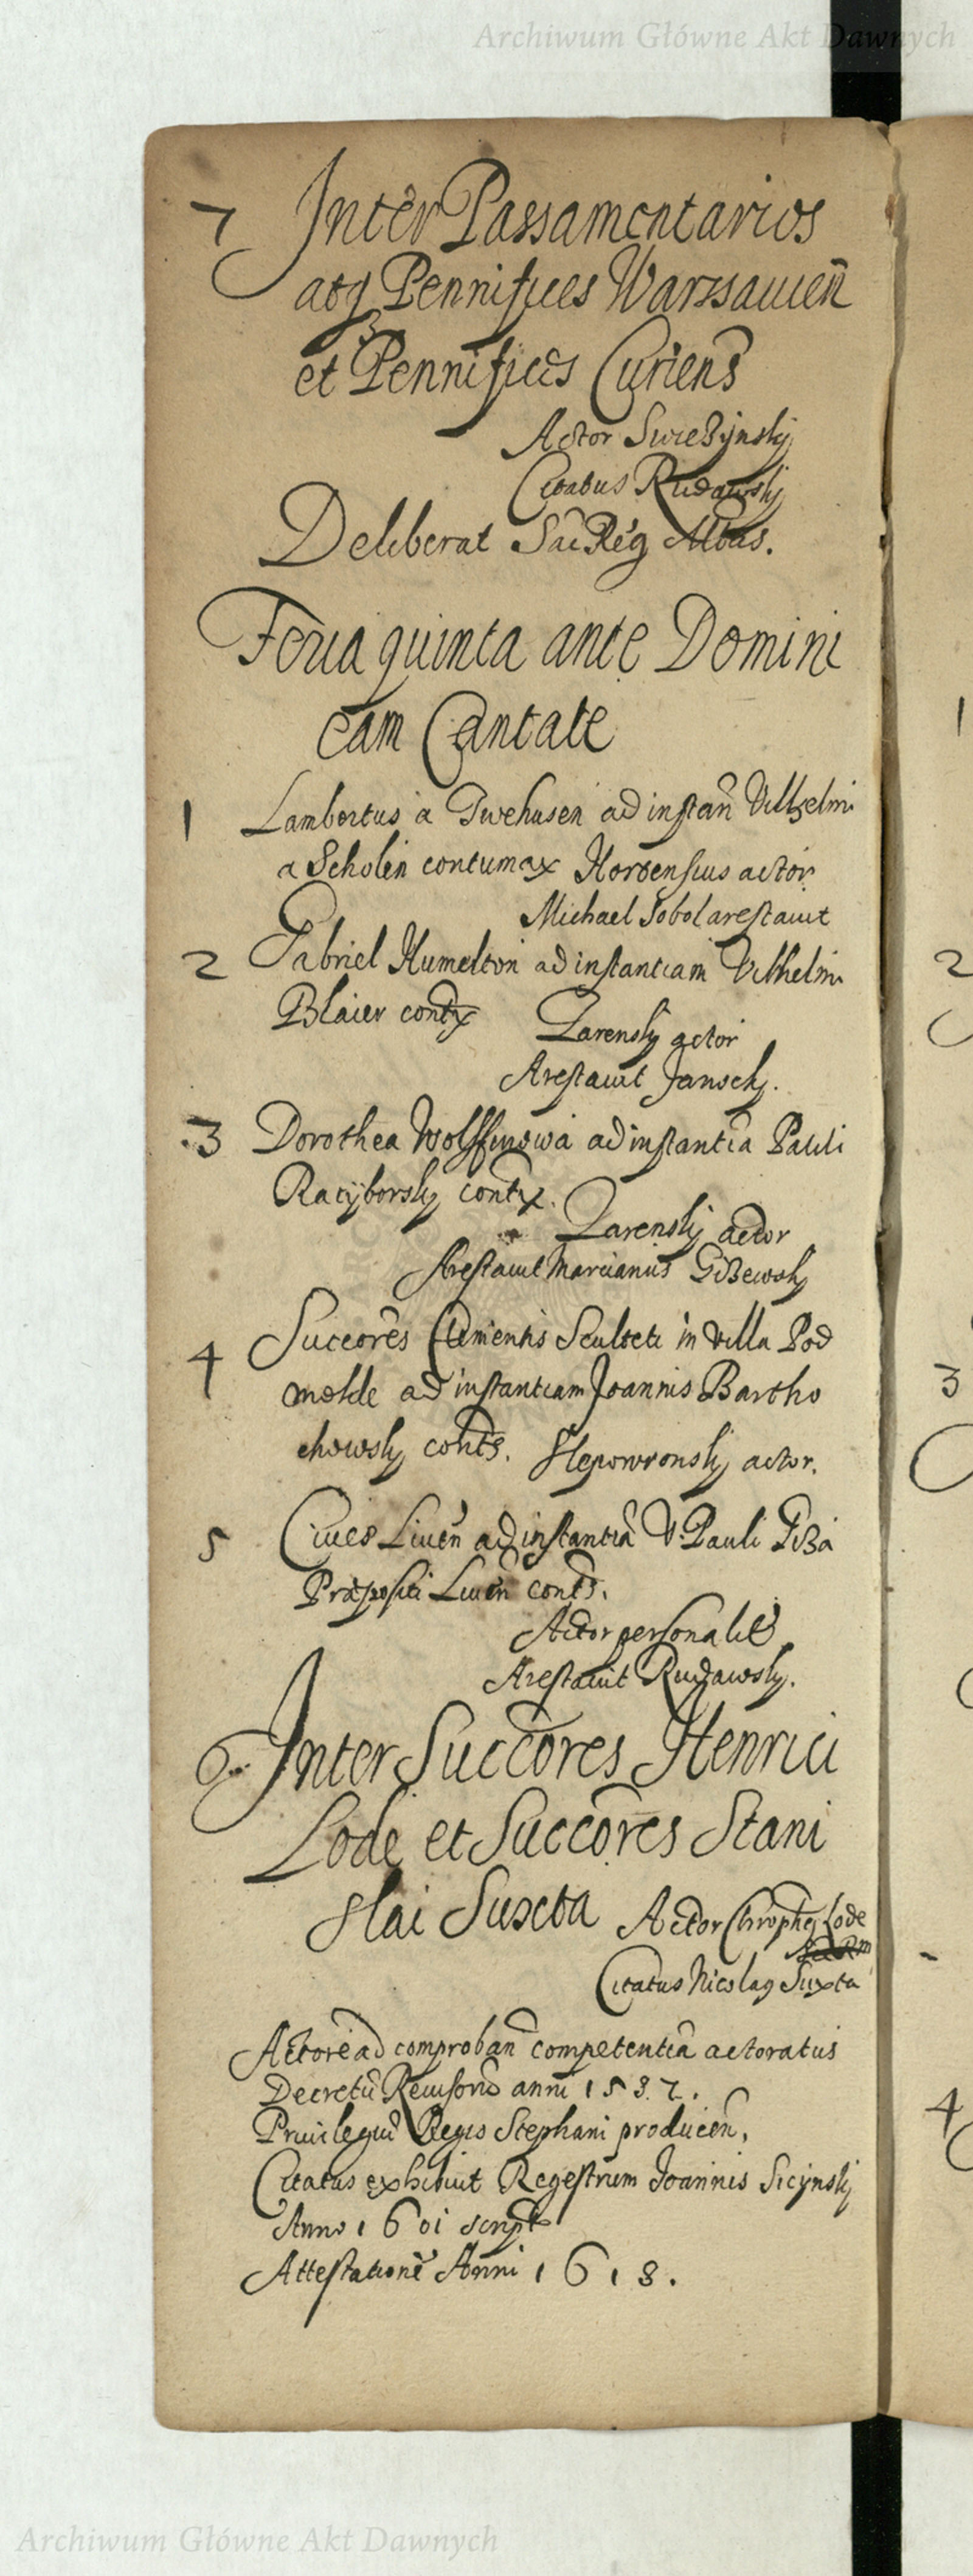 Archiwum Główne Akt Dawnych
7 Inter Passamentarios
atq3 Pennifices Warssauień
et Pennifices Curiens
Actor Swieżynskij
Citatus Rudawskij
Deliberat Sac Reg Mtas.
Feria quinta ante Domini
cam Cantate
1 Lambertus a Twehusen ad instan Vilhelmi
a Scholen contumax Hortensius actor
Michael Sobol arestavit
2 Gabriel Humelton ad instantiam Vilhelmi
Blaier contx Zarenskij actor
Arestavit Jansch.
3 Dorothea Wolffinowa ad instantia Pauli
Racyborskij contx. Zarenskij actor
Arestavit Marcianus Giżewskij
4 Succores Clementis Sculteti in Villa Pod
molde ad instantiam Joannis Bartho
chowskij conts. Slepowronskij actor.
5 Cives Liven ad instantia V. Pauli Giża
Præpositi Liven conts.
Actor personalit
Arestavit Rudawskij.
6 Inter Succores Henrici
Lode et Succores Stani
slai Suxta Actor Chrophq Lode
Citatus Nicolaq Suxta
Actore ad comproban competentia actoratus
Decretu Revisoriu anni 1587.
Privilegiu Regis Stephani producen,
Citatus exhibuit Regestrum Joannis Sicynskij
Anno 1601 script
Attestatione Anni 1618.
1
2
3
4
Archiwum Główne Akt Dawnych